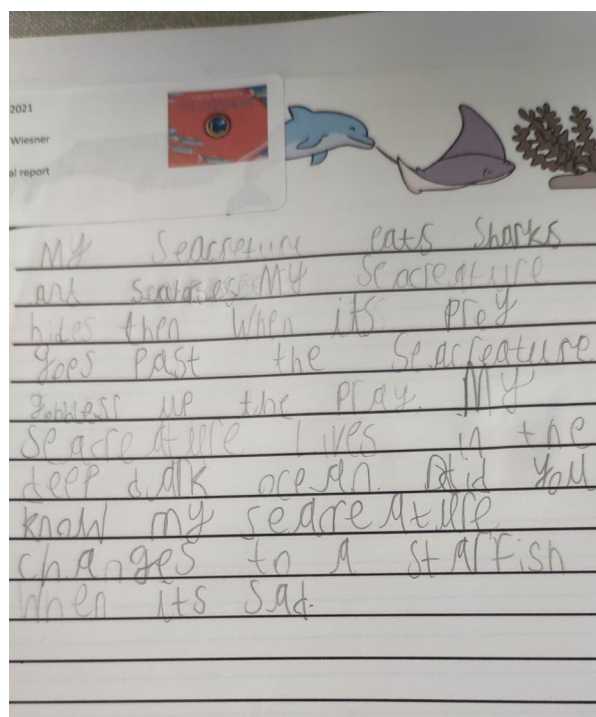 2021
Wiesner
al report
FLOTSAM
My Seacreture eats Sharks
and My Seacreature
hides then When its prey
goes Past the Seacreature
up the pray. My
Seacreature lives in the
deep dark ocean. Did you
know my seacreature
changes to a starfish
When its Sad.